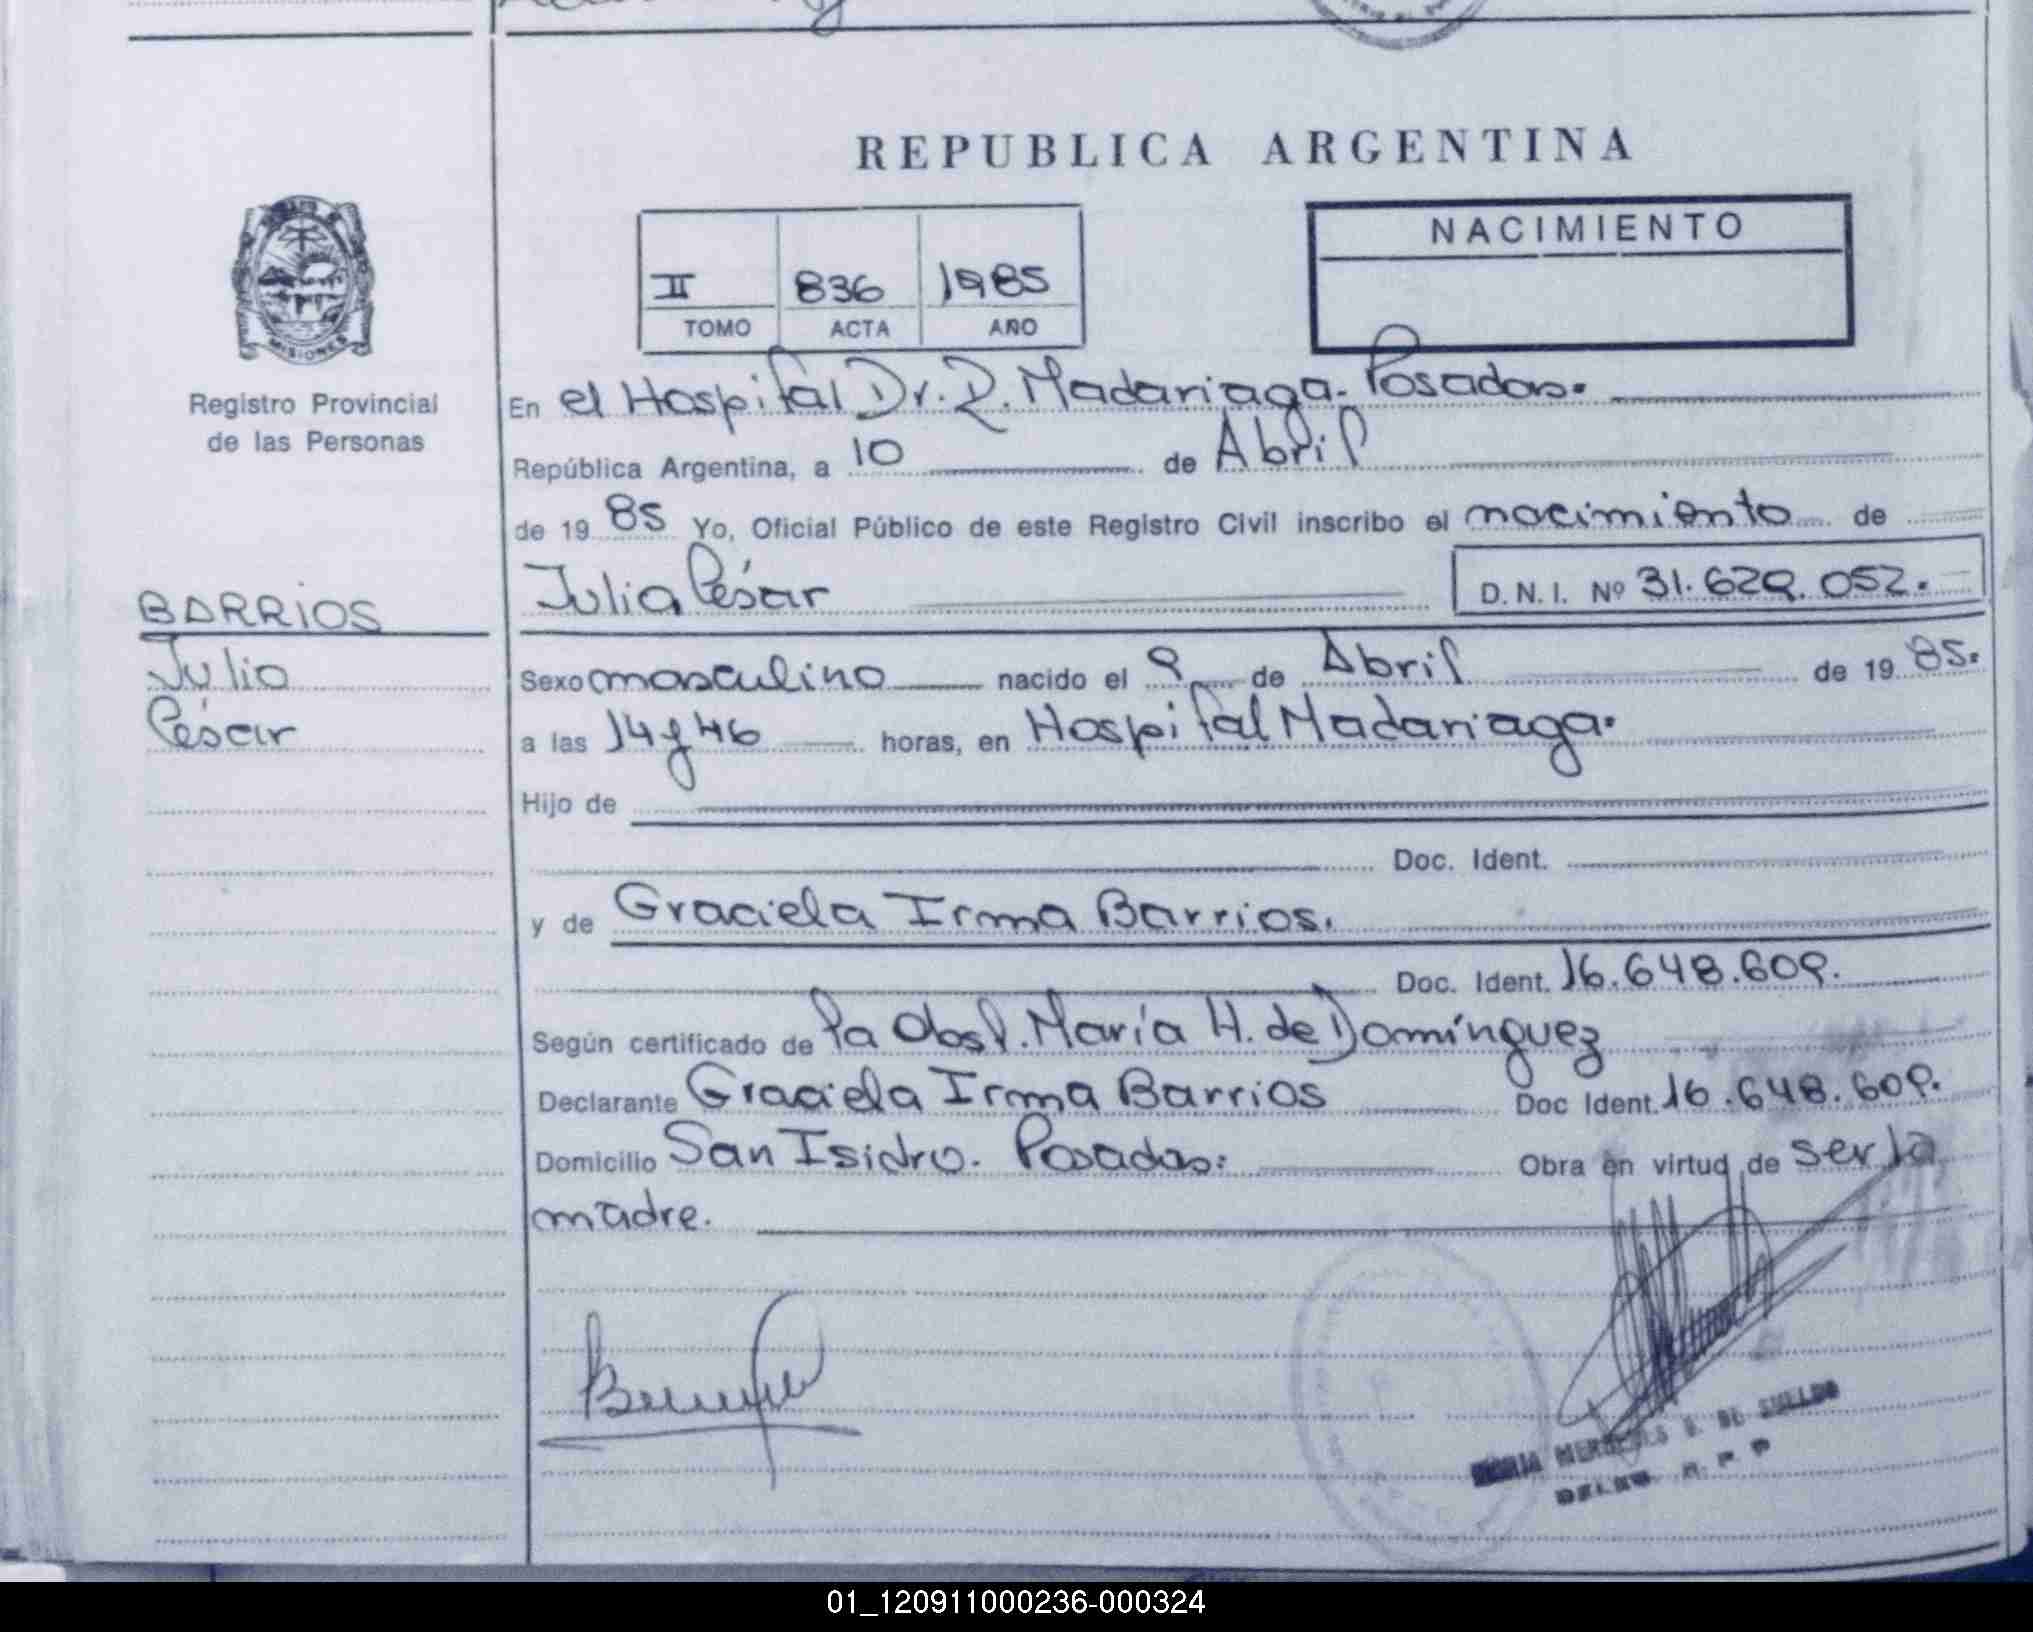 REPUBLICA ARGENTINA
NACIMIENTO
II 836 1985
TOMO ACTA AÑO
MISIONES
Registro Provincial
de las Personas
En el Hospital Dr. R. Madariaga. Posadas.
República Argentina, a 10 de Abril
de 1985 Yo, Oficial Público de este Registro Civil inscribo el nacimiento de
Julio César D.N.I. Nº 31.629.052.
BARRIOS
Julio
César
Sexo masculino nacido el 9 de Abril de 1985.
a las 14 y 46 horas, en Hospital Madariaga.
Hijo de
Doc. Ident.
y de Graciela Irma Barrios.
Doc. Ident. 16.648.609.
Según certificado de la Obst. María H. de Domínguez
Declarante Graciela Irma Barrios Doc Ident. 16.648.609.
Domicilio San Isidro. Posadas. Obra en virtud de ser la
madre.
MERCEDES DE
01_120911000236-000324